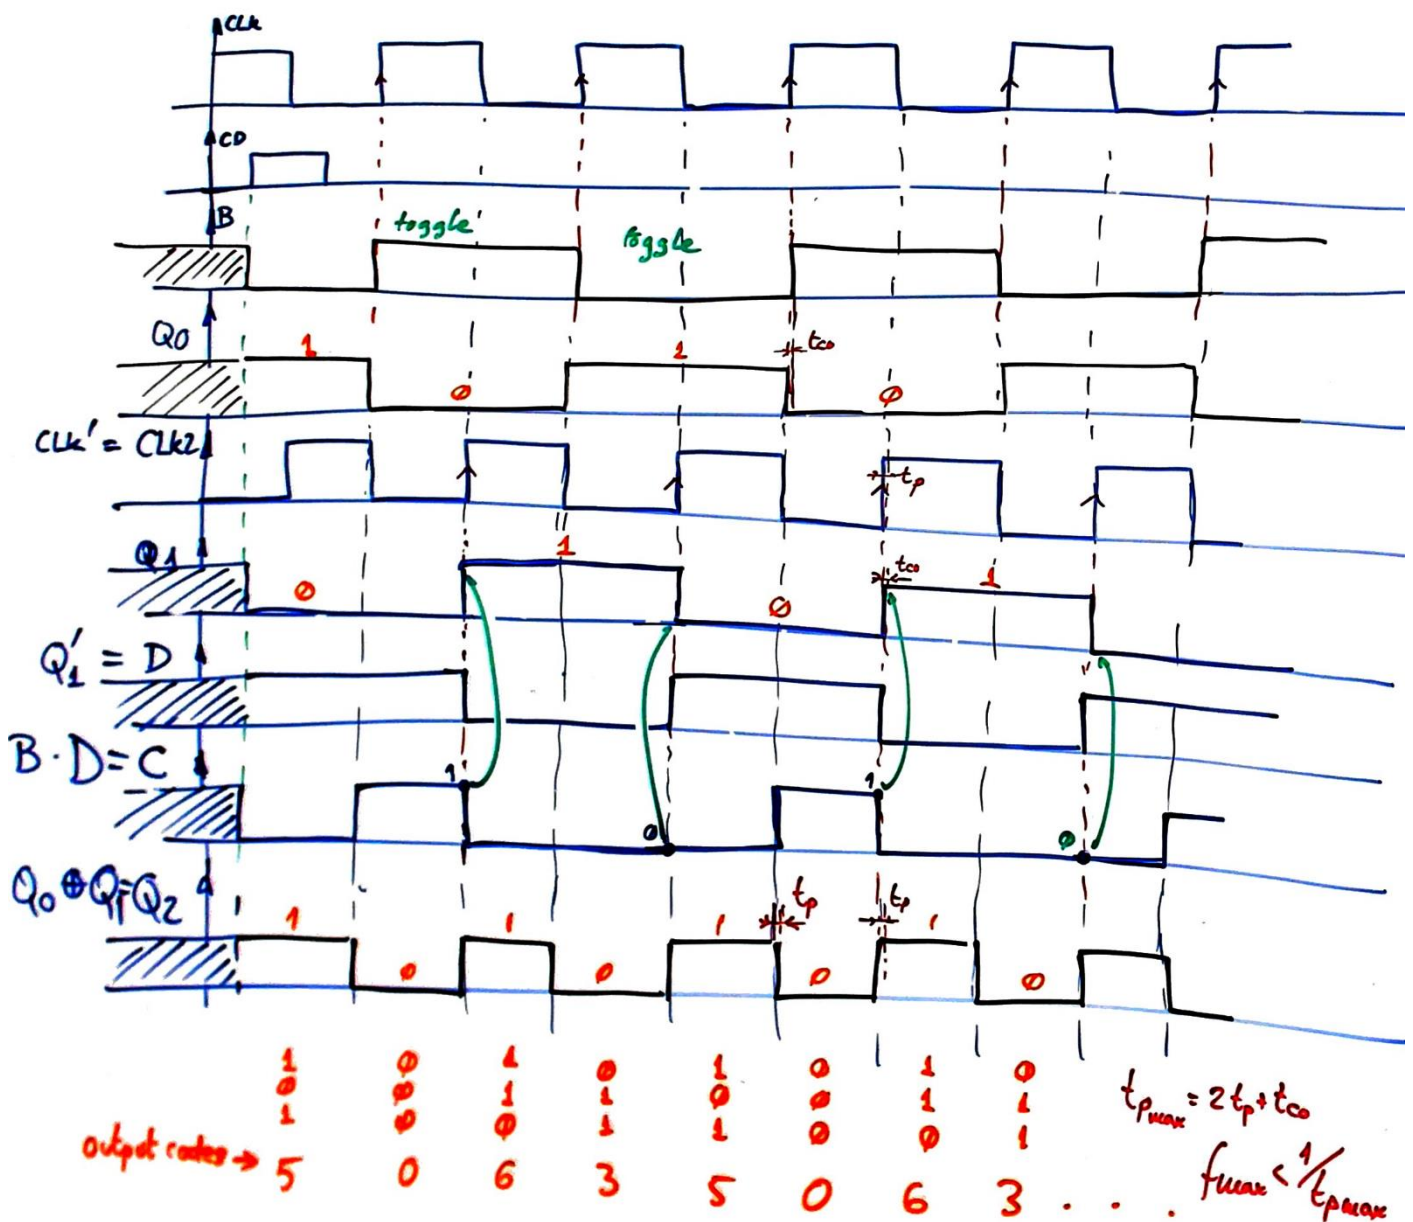 CLK
CD
B
toggle toggle
Q0
1 0 1 tco 0
CLK' = CLK2
tp
Q1
0 1 0 tco 1
Q1' = D
B · D = C
1 0 1 0
Q0 ⊕ Q1 = Q2
1 0 1 0 1 tp 0 tp 1 0
1 0 1 0 1 0 1 0
0 0 1 1 0 0 1 1
1 0 0 1 1 0 0 1
tpmax = 2tp + tco
output codes → 5 0 6 3 5 0 6 3 . . .
fmax < 1/tpmax